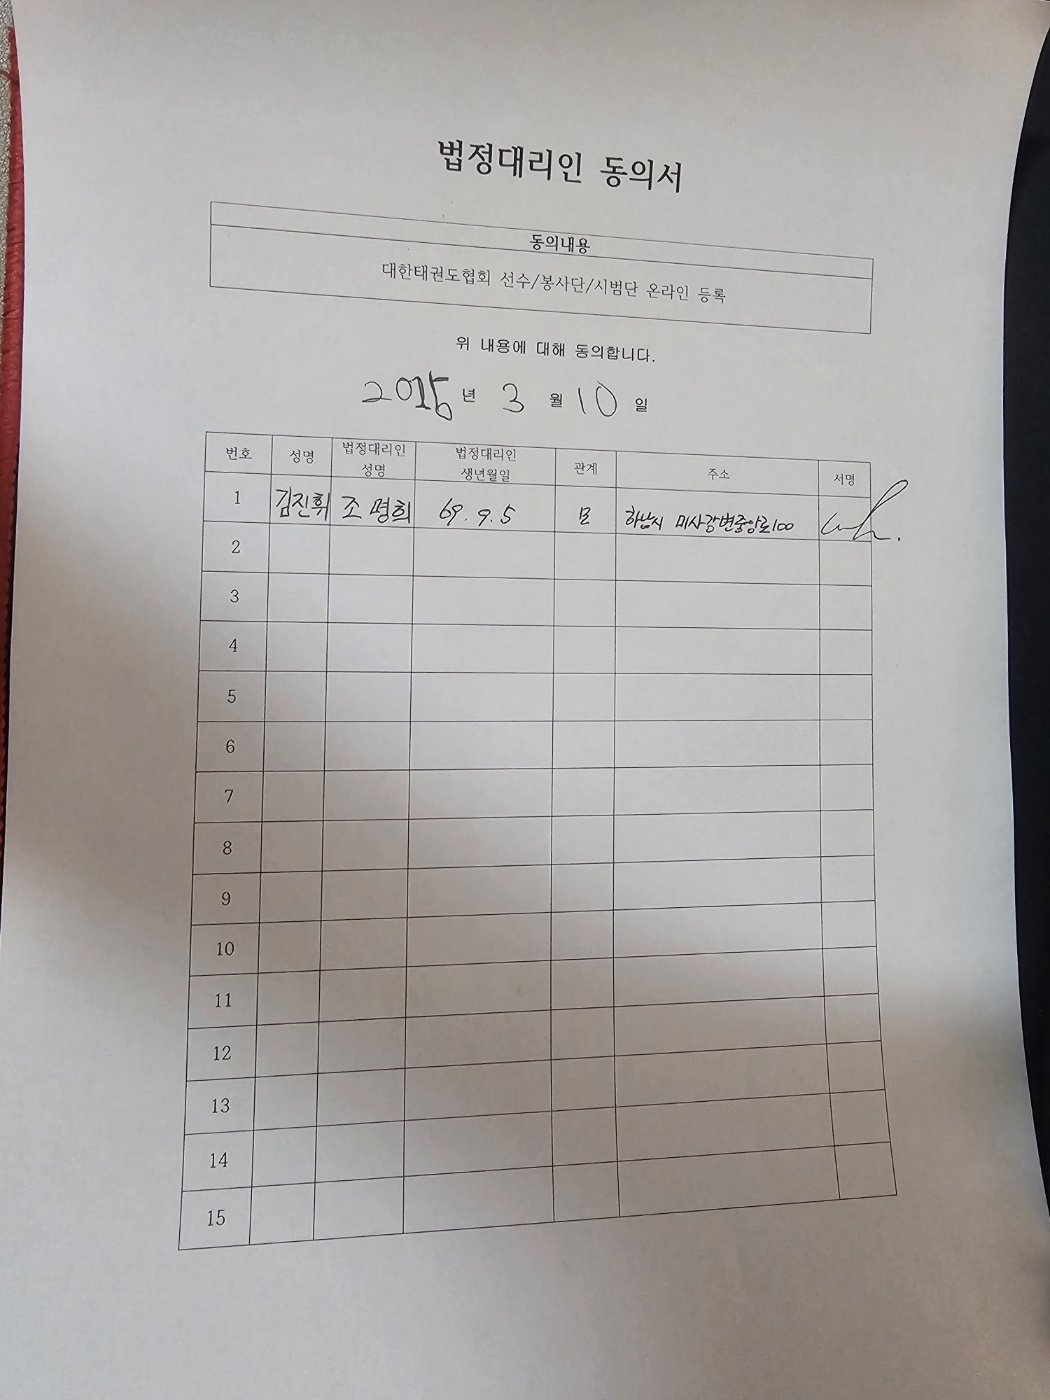 법정대리인 동의서
동의내용
대한태권도협회 선수/봉사단/시범단 온라인 등록
위 내용에 대해 동의합니다.
2025년 3 월 10 일
번호 성명 법정대리인 성명 법정대리인 생년월일 관계 주소 서명
1 김진휘 조명희 69. 9. 5 모 하남시 미사강변중앙로100
2
3
4
5
6
7
8
9
10
11
12
13
14
15